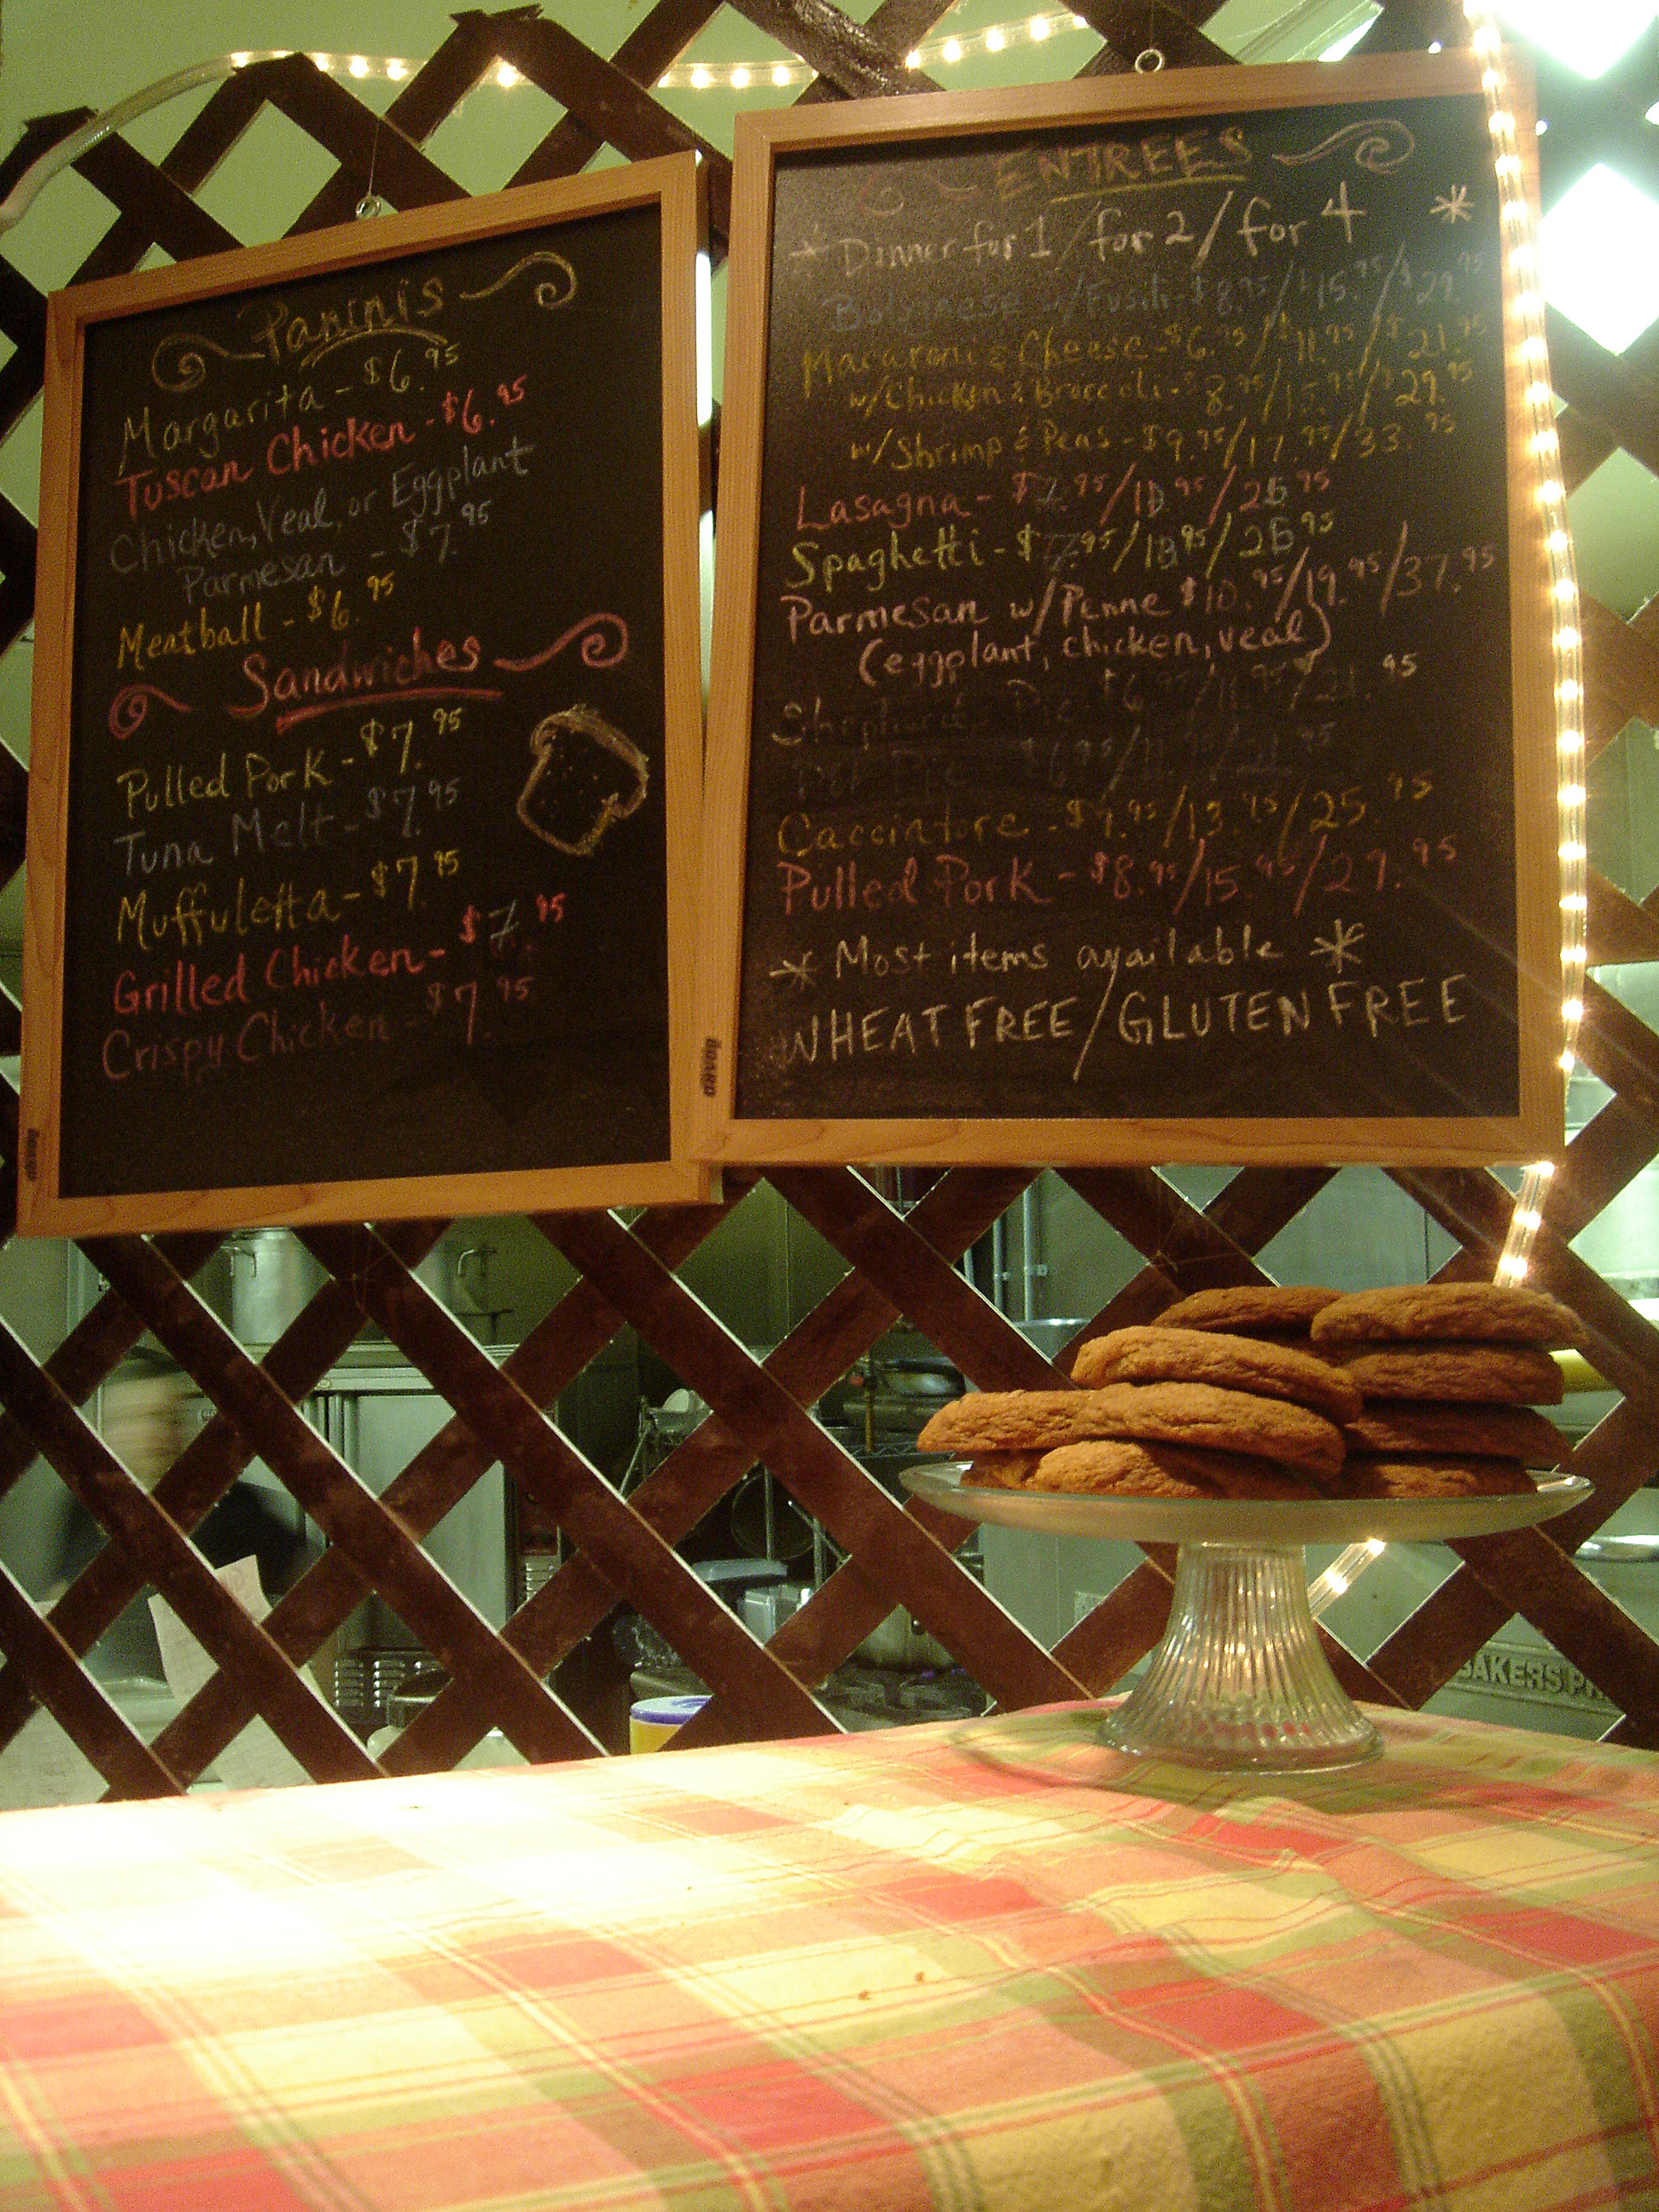 Paninis
Margarita - $6.95
Tuscan Chicken - $6.95
Chicken, Veal, or Eggplant
Parmesan - $7.95
Meatball - $6.95
Sandwiches
Pulled Pork - $7.95
Tuna Melt - $7.95
Muffuletta - $7.95
Grilled Chicken - $7.95
Crispy Chicken - $7.95
BOARD
ENTREES
* Dinner for 1 / for 2 / for 4 *
Bolognese w/ Fusili - $8.95 / $15.95 / $29.95
Macaroni & Cheese - $6.95 / $11.95 / $21.95
w/ Chicken & Broccoli - $8.95 / 15.95 / $29.95
w/ Shrimp & Peas - $9.95 / 17.95 / 33.95
Lasagna -
Spaghetti -
Parmesan w/ Penne $10.95 / 19.95 / 37.95
(eggplant, chicken, veal)
Pie $6.95 / 11.95 / 21.95
Pot Pie $6.95 / 11.95 / 21.95
Cacciatore - $9.95 / 13.95 / 25.95
Pulled Pork - $8.95 / 15.95 / 29.95
* Most items available *
WHEAT FREE / GLUTEN FREE
BOARD
BAKERS